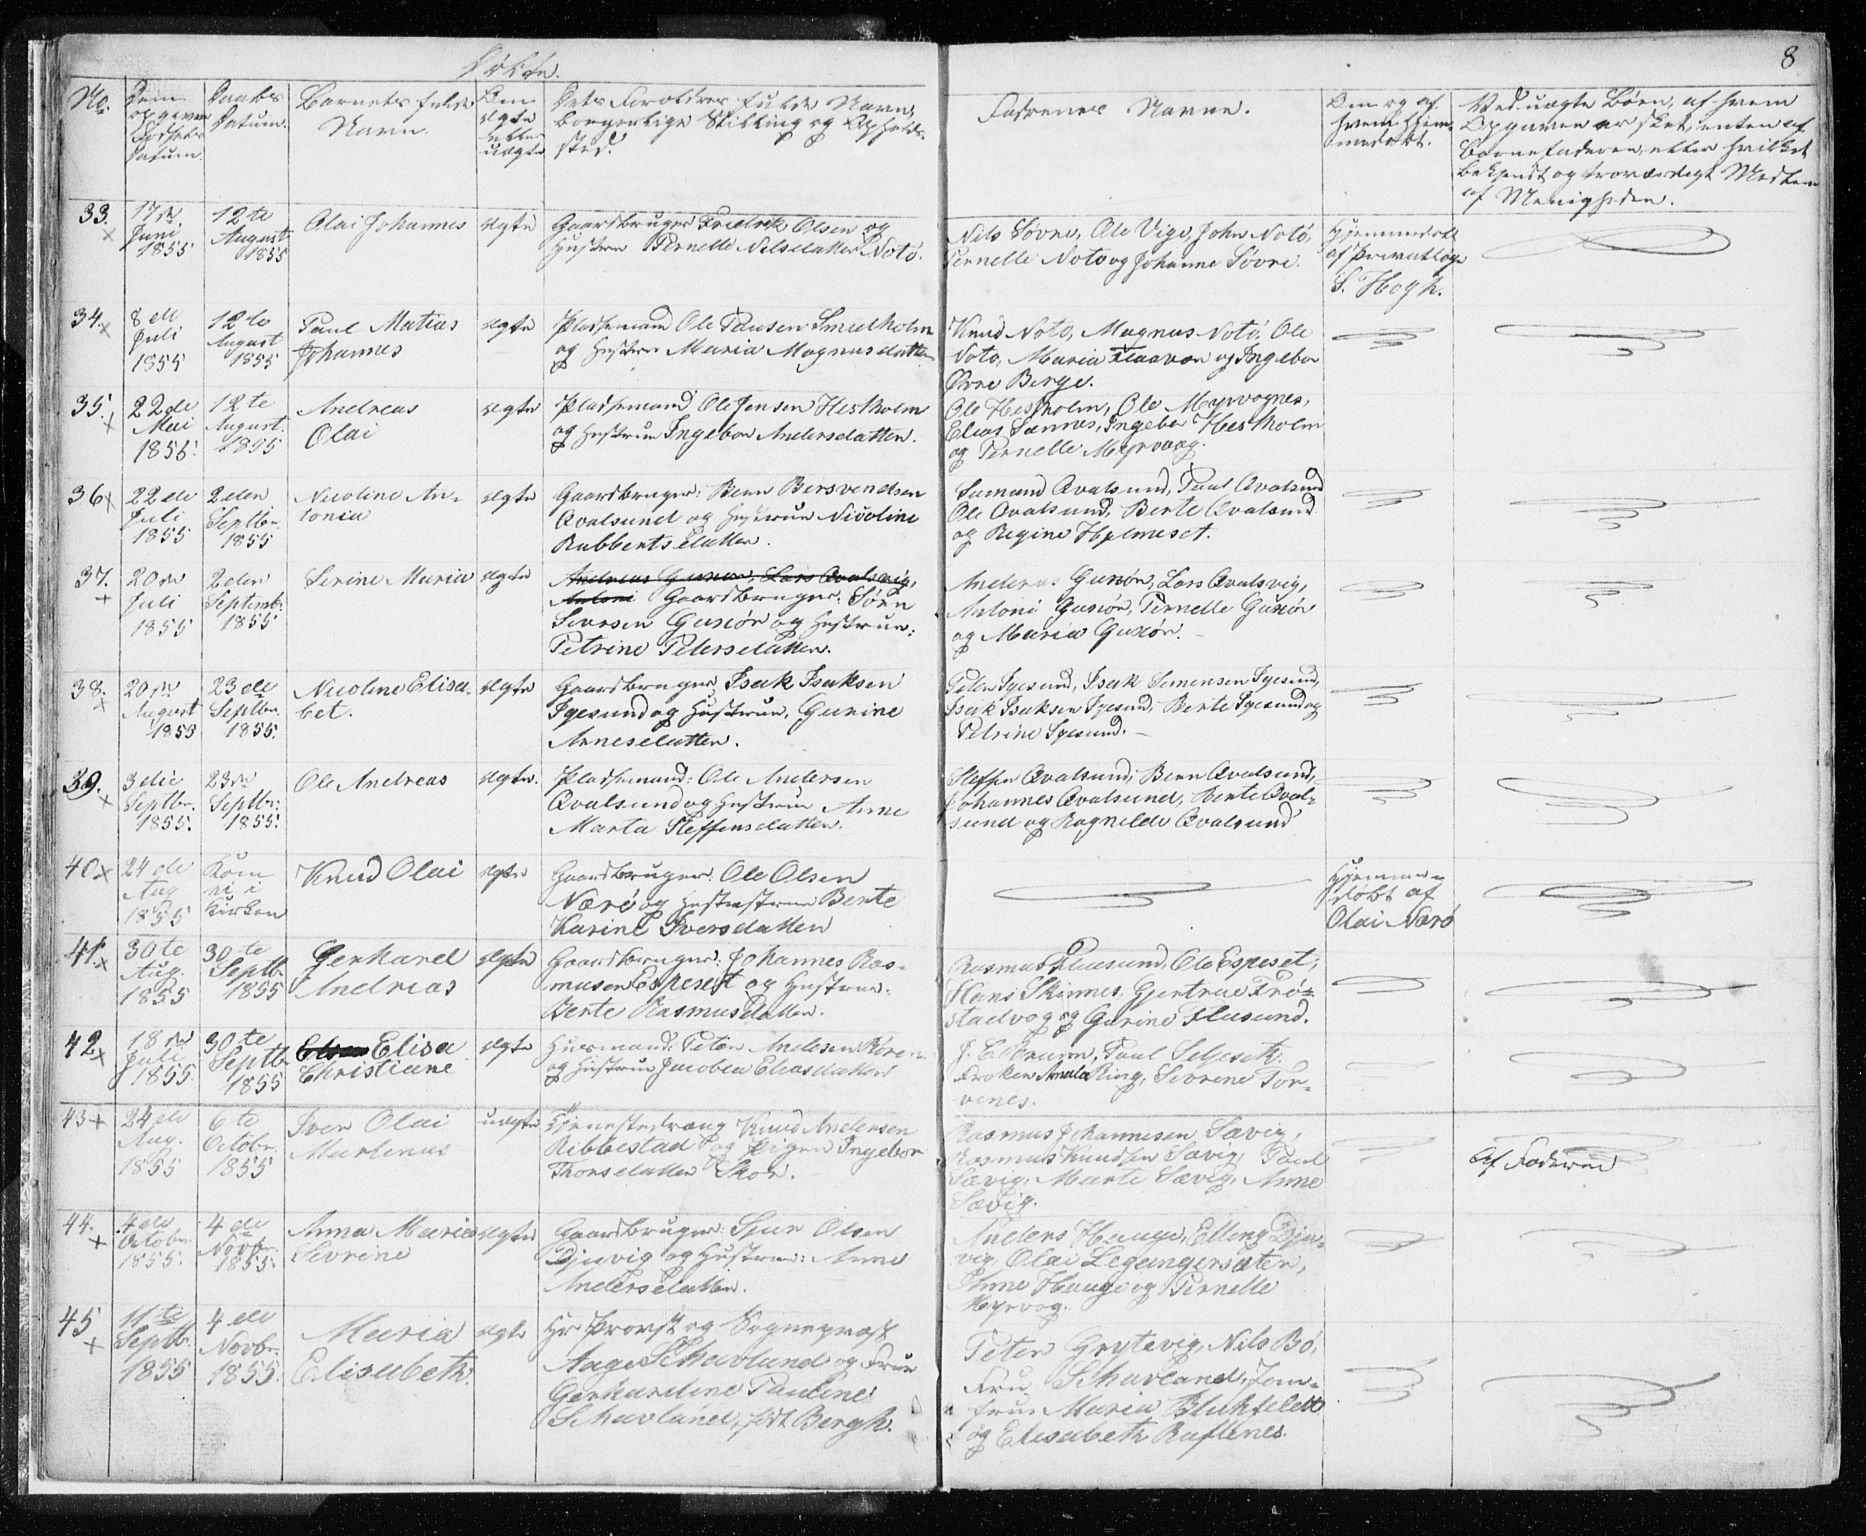 8
Døbte.
No.
Dem
opgivne
Fødsels
Datum.
Daabs
Datum.
Barnets fulde
Navn.
Om
ægte
eller
uægte
Dets Forældres fulde Navn,
borgerlige Stilling og Opholds
sted.
Fadrenes Navne.
Om og af
hvem hjem-
medøbt.
Ved uægte Børn, af hvem
Opgaven er sket, enten af
Barnefaderen, eller hvilket
bekjendt og troværdigt Medlem
af Menigheden.
33.
17de
Juni
1855
12te
August
1855
Olai Johannes
ægte
Gaardbruger Fredrik Olsen og
Hustru Pernelle Nilsdatter Notø.
Nils Søvre, Ole Vige, John Notø,
Pernelle Notø og Johanne Søvre.
Hjemmedøbt
af
S. Høgh.
34.
8de
Juli
1855
12te
August
1855
Paul Matias
Johannes
ægte
Pladsmand Ole Paulsen Smedholm
og Hustru Maria Magnusdatter
Knud Notø, Magnus Notø, Ole
Notø, Maria og Ingebor
Øvre Berge.
35.
22de
Mai
1855.
12te
August.
1855
Andreas
Olai
ægte
Pladsmand Ole Jensen Hestholm
og Hustru Ingebor Andersdatter.
Ole Hestholm, Ole Myrvognes,
Elias Sannes, Ingebor Hestholm
og Pernelle Myrvaag.
36
22de
Juli
1855
2den
Septbr.
1855
Nicoline An-
tonia
ægte
Gaardbruger: Benn Bersvendsen
Qvalsund og Hustrue Nicoline
Rubbertsdatter.
Samund Qvalsund, Paul Qvalsund
Ole Qvalsund, Berte Qvalsund
og Regine Hjelmeset.
37.
20de
Juli
1855
2den
Septemb:
1855.
Serine Maria
ægte
Andreas Gursøn, Lars Qvalsvig,
Antoni Gaardbruger: Sørn
Seversen Gursøn og Hustrue:
Petrine Petersdatter.
Andreas Gursøn, Lars Qvalsvig,
Antoni Gursøn, Pernelle Gursøn
og Maria Gursøn.
38.
20de
August
1855
23de
Septbr.
1855.
Nicoline Elisa-
bet.
ægte
Gaardbruger Isak Isaksen
Igesund og Hustrue, Gurine
Arnesdatter.
Peter Igesund, Isak Simensen Igesund,
Isak Isaksen Igesund, Berte Igesund og
Petrine Igesund.
39.
3die
Septbr.
1855.
23de
Septbr:
1855.
Ole Andreas
ægte.
Pladsmand: Ole Andersen
Qvalsund og Hustrue Anne
Marta Steffensdatter.
Steffen Qvalsund, Benn Qvalsund,
Johannes Qvalsund, Berte Qval-
sund og Ragnilde Qvalsund
40.
24de
Aug
1855
Kom
ei i
Kirken
Knud Olai
ægte
Gaardbruger: Ole Olsen
Nærø og Hustrue Berte
Karine Iversdatter
Hjemme-
døbt af
Olai Nærø
41.
30te
Aug.
1855
30te
Septb.
1855
Gerhard
Andreas
ægte
Gaardbruger: Johannes Ras-
musen Espeset og Hustrue:
Berte Rasmusdatter.
Rasmus Flusund, Ole Espeset,
Hans Skinnes, Gjertrue Frø-
stadvog og Gurine Flusund.
42
18de
Juli
1855.
30te
Septb.
1855
Elisa
Christiane
ægte
Huusmand: Peter Andersen Røren
og Hustrue Jacobea Eliasdatter
J. C. Brunn, Paul Seljeseth.
Frøken Amalia Ring, Severene Tor-
venes.
43
24de
Aug.
1855
6te
Octobr.
1855
Iver Olai
Martinus
uægte
Tjenestedreng Knud Andersen
Ribbestad og Pigen Ingebor
Thorsdatter Skor.
Rasmus Johannesen Sævig,
Rasmus Knudsen Sævig, Paul
Sævig, Marte Sævig, Anne
Sævig.
Af Faderen
44.
4de
Octobr.
1855.
4de
Novbr.
1855.
Anna Maria
Severine
ægte
Gaardbruger: Sjur Olsen
Djuvig og Hustrue: Anne
Andersdatter.
Anders Hauge, Elling Dju-
vig, Olai Legangersæter,
Anne Hauge og Pernelle
Myrvog.
45
11te
Septb.
1855
4de
Novbr.
1855.
Maria
Elisabeth.
ægte
Hr Provst og Sognepræst
Aage Schavland og Frue
Gerhardine Pauline
Schavland, født Bergh.
Peter Grytevig, Nils Bø,
Fru Schavland, Jom-
frue Maria Bluhfeldt
og Elisabeth Raftenes.